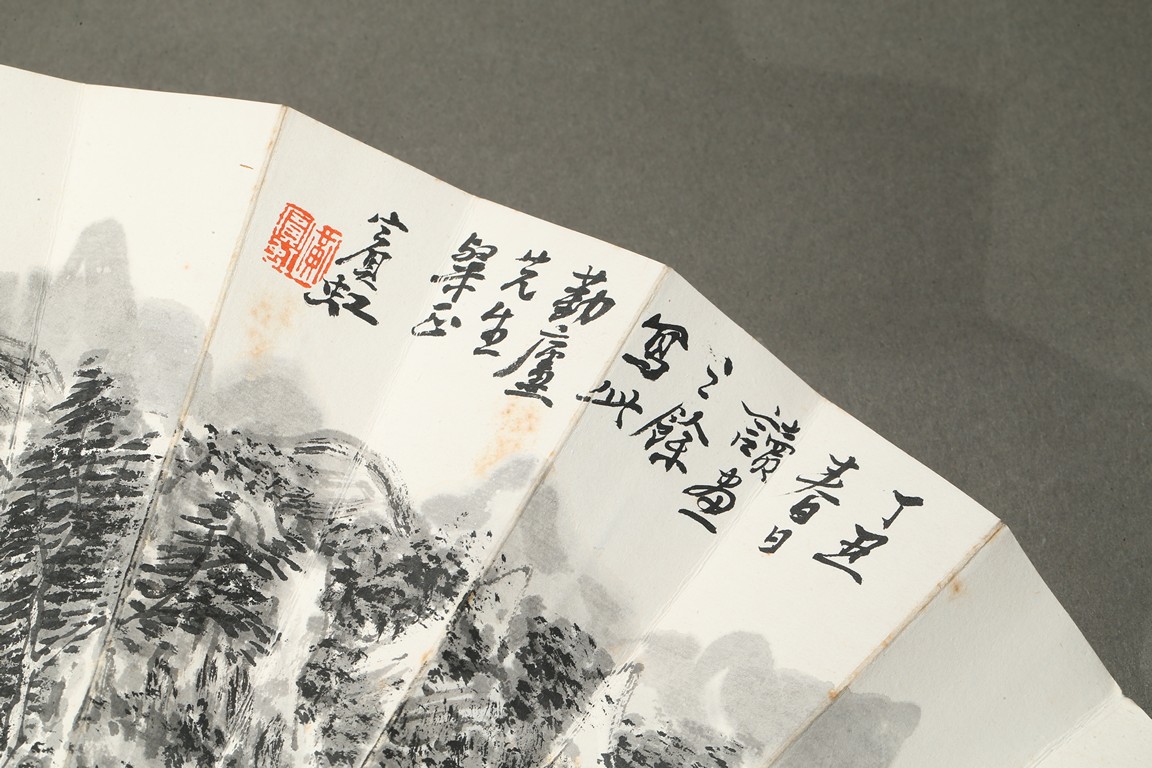 丁丑
春日
讀畫
之餘
寫此
勤廬
先生
粲正
賓虹
黃賓虹